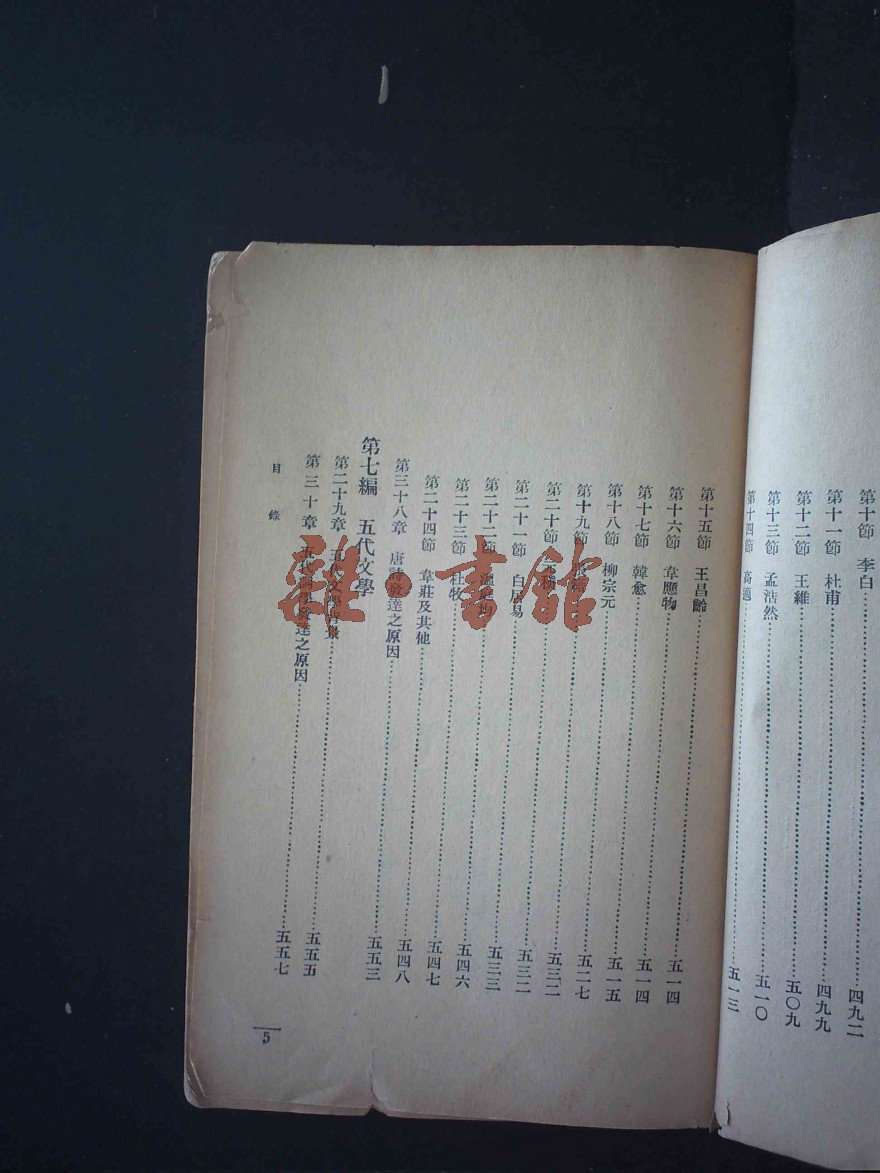 第十節　李白……四九二
第十一節　杜甫……四九九
第十二節　王維……五〇九
第十三節　孟浩然……五一〇
第十四節　高適……五一三
第十五節　王昌齡……五一四
第十六節　韋應物……五一四
第十七節　韓愈……五一五
第十八節　柳宗元……五二七
第十九節
第二十節　元稹……五三二
第二十一節　白居易……五三三
第二十二節　溫庭筠……五四六
第二十三節　杜牧……五四七
第二十四節　韋莊及其他……五四八
第三十八章　唐詩發達之原因
第七編　五代文學……五五三
第二十九章　五代文學背景……五五五
第三十章　五代詞學發達之原因……五五七
目錄
5
雜·書館